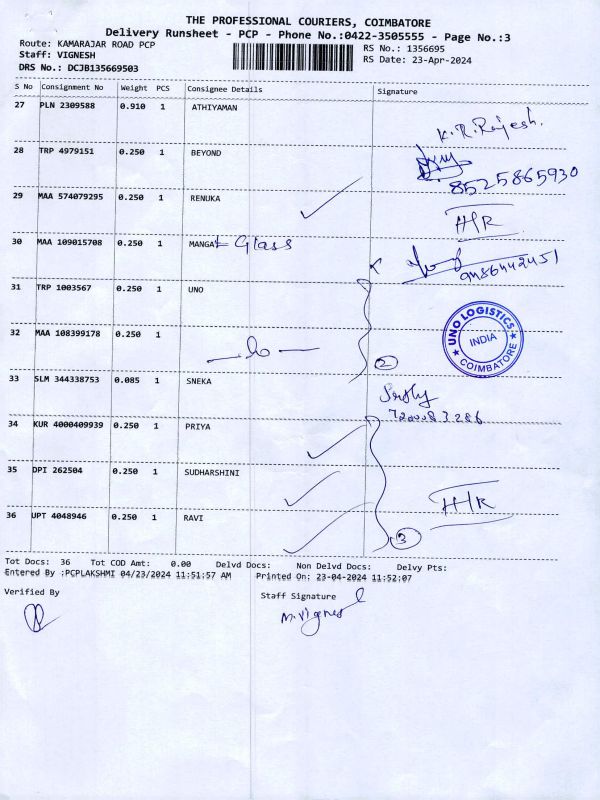 THE PROFESSIONAL COURIERS, COIMBATORE
Delivery Runsheet - PCP - Phone No.:0422-3505555 - Page No.:3
Route: KAMARAJAR ROAD PCP
RS No.: 1356695
Staff: VIGNESH
RS Date: 23-Apr-2024
DRS No.: DCJB135669503
S No Consignment No Weight PCS Consignee Details Signature
27 PLN 2309588 0.910 1 ATHIYAMAN
K.R.Rajesh.
28 TRP 4979151 0.250 1 BEYOND
8525865930
29 MAA 574079295 0.250 1 RENUKA
H/R
30 MAA 109015708 0.250 1 MANGAL Glass
9486442451
31 TRP 1003567 0.250 1 UNO
UNO LOGISTICS
INDIA
COIMBATORE
32 MAA 108399178 0.250 1
2
33 SLM 344338753 0.085 1 SNEKA
34 KUR 4000409939 0.250 1 PRIYA
35 DPI 262504 0.250 1 SUDHARSHINI
H/R
36 UPT 4048946 0.250 1 RAVI
3
Tot Docs: 36 Tot COD Amt: 0.00 Delvd Docs: Non Delvd Docs: Delvy Pts:
Entered By :PCPLAKSHMI 04/23/2024 11:51:57 AM Printed On: 23-04-2024 11:52:07
Verified By
Staff Signature
M.Vignesh